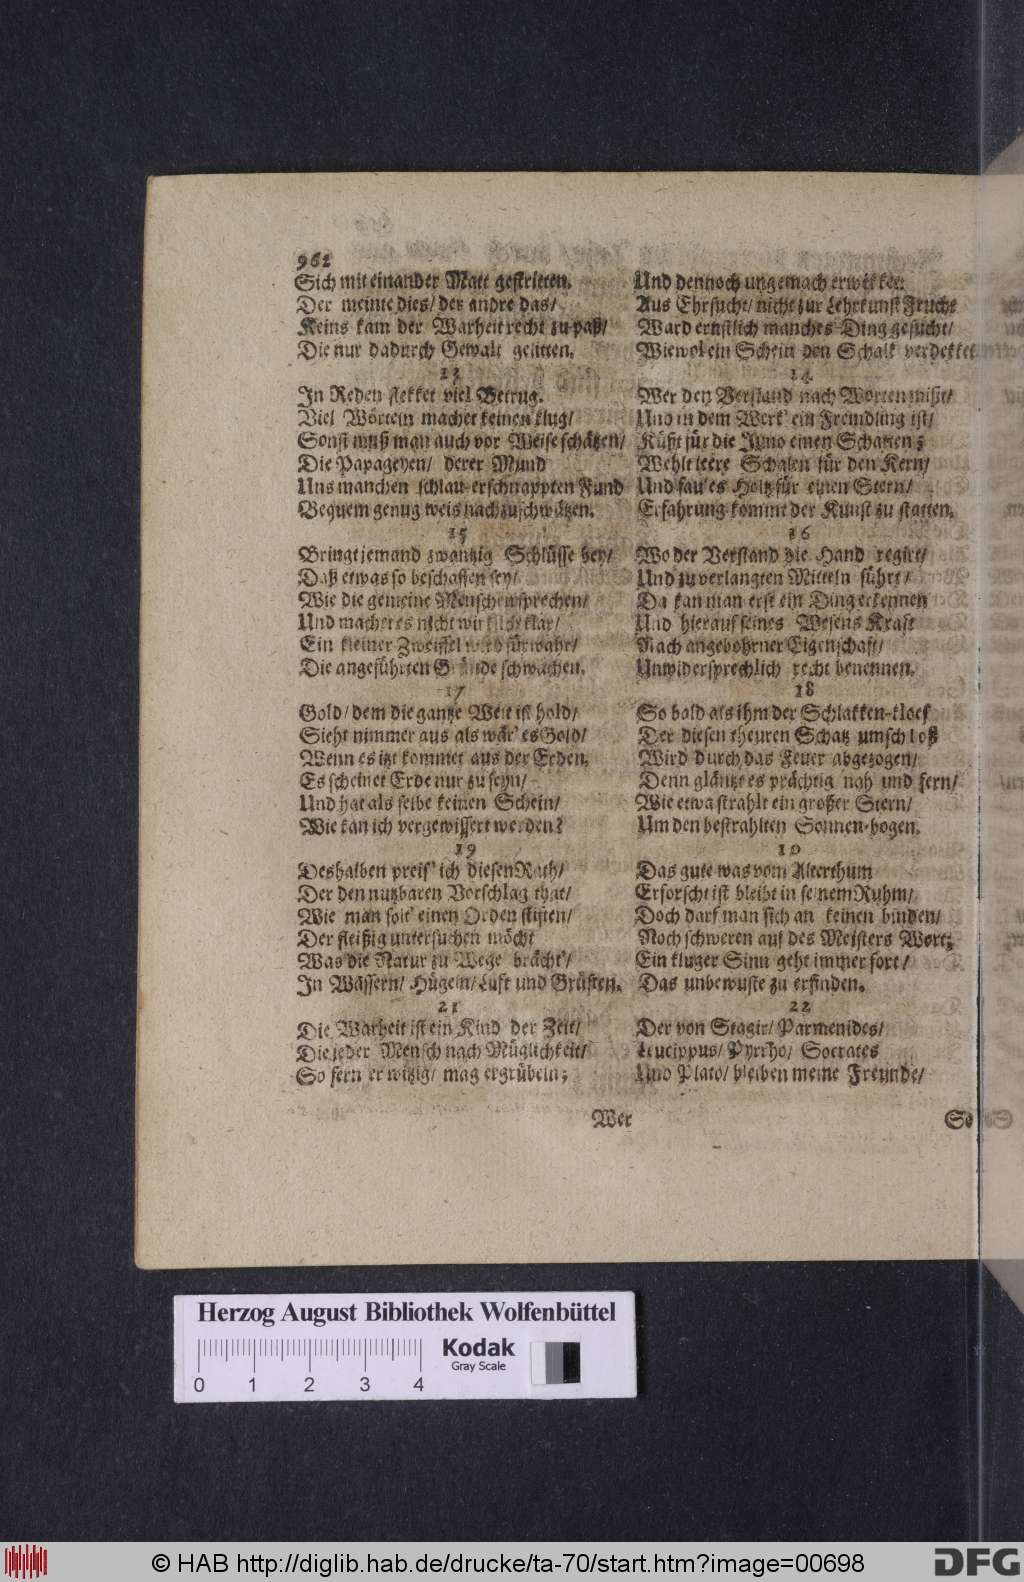 962
Sich mit einander Matt gestritten.
Der meinte dies/ der andre das/
Keins kam der Warheit recht zu paß/
Die nur dadurch Gewalt gelitten.
Und dennoch ungemach erwekket:
Aus Ehrsucht/ nicht zur Lehrkunst Frucht
Ward ernstlich manches Ding gesucht/
Wiewol ein Schein den Schalk verdekket
13
In Reden stekket viel Betrug.
Viel Wörteln machet keinen klug/
Sonst muß man auch vor Weise schätzen/
Die Papageyen/ derer Mund
Uns manchen schlau-erschnappten Fund
Bequem genug weis nachzuschwätzen.
14
Wer den Verstand nach Worten mißt/
Und in dem Werk' ein Fremdling ist/
Küßt für die Juno einen Schatten;
Wehlt leere Schalen für den Kern/
Und faules Holtz für einen Stern/
Erfahrung kommt der Kunst zu statten.
15
Bringt jemand zwantzig Schlüsse bey/
Daß etwas so beschaffen sey/
Wie die gemeine Menschen sprechen/
Und machet es nicht wirklich klar/
Ein kleiner Zweiffel wird fürwahr/
Die angeführten Gründe schwächen.
16
Wo der Verstand die Hand regirt/
Und zu verlangten Mitteln führt/
Da kan man erst ein Ding erkennen
Und hierauf seines Wesens Kraft
Nach angebohrner Eigenschaft/
Unwidersprechlich recht benennen.
17
Gold/ dem die gantze Welt ist hold/
Sieht nimmer aus als wär' es Gold/
Wenn es itzt kommet aus der Erden.
Es scheinet Erde nur zu seyn/
Und hat als selbe keinen Schein/
Wie kan ich vergewissert werden?
18
So bald als ihm der Schlakken-kloß
Der diesen theuren Schatz umschloß
Wird durch das Feuer abgezogen/
Denn gläntzt es prächtig nah und fern/
Wie etwa strahlt ein großer Stern/
Um den bestrahlten Sonnen-bogen.
19
Deshalben preis' ich diesen Rath/
Der den nutzbaren Vorschlag that/
Wie man solt' einen Orden stiften/
Der fleißig untersuchen möcht
Was die Natur zu Wege brächt'/
In Wässern/ Hügeln/ Luft und Grüften.
20
Das gute was vom Alterthum
Erforscht ist bleibt in seinem Ruhm/
Doch darf man sich an keinen binden/
Noch schweren auf des Meisters Wort;
Ein kluger Sinn geht immer fort/
Das unbewuste zu erfinden.
21
Die Warheit ist ein Kind der Zeit/
Die jeder Mensch nach Müglichkeit/
So fern er witzig/ mag ergrübeln;
22
Der von Stagir/ Parmenides/
Leucippus/ Pyrrho/ Socrates
Und Plato/ bleiben meine Freunde/
Wer
So
Herzog August Bibliothek Wolfenbüttel
0 1 2 3 4
Kodak
Gray Scale
© HAB http://diglib.hab.de/drucke/ta-70/start.htm?image=00698
DFG